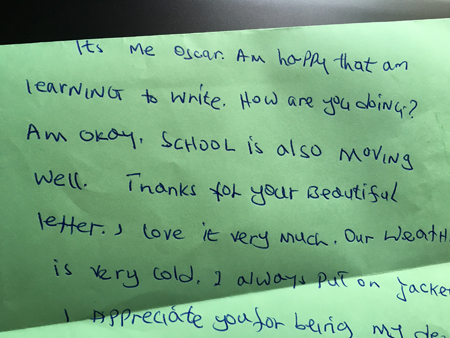 Its me oscar. Am happy that am
learning to write. How are you doing?
Am okay. SCHOOL is also moving
well. Thanks for your Beautiful
letter. I love it very much. Our
is very cold. I always put on
I Appreciate you for being my